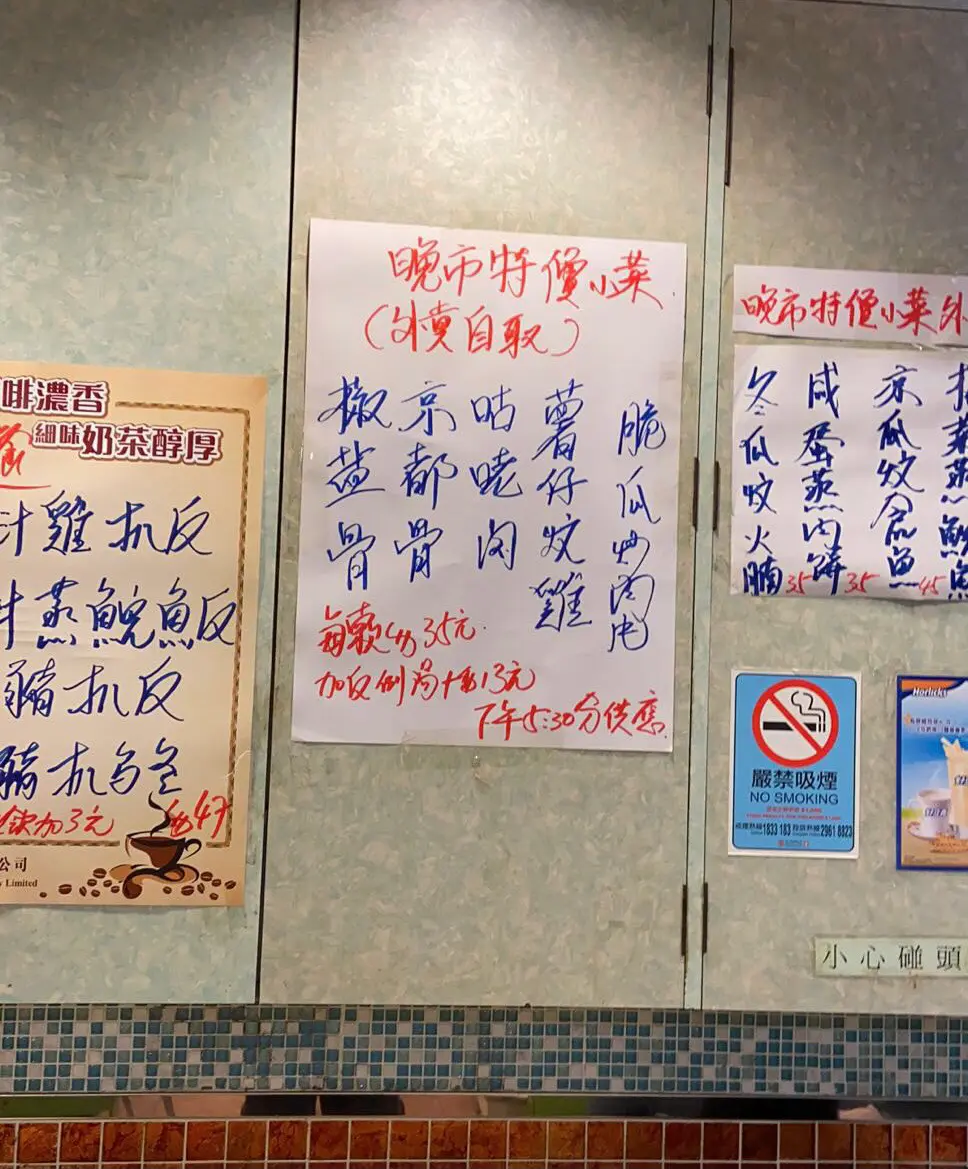 啡濃香
細味奶茶醇厚
汁雞扒反
蒸鯇魚反
豬扒反
豬扒乌冬
加3元
47
公司
Limited
晚市特價小菜
(外賣自取)
椒盐骨
京都骨
咕咾肉
薯仔炆雞
脆瓜炒肉片
每款 35元
加反例汤 13元
下午5:30分供應
晚市特價小菜外
冬瓜炆火腩 35
咸蛋蒸肉餅 35
凉瓜炆仓魚 45
嚴禁吸煙
NO SMOKING
1833 183
2961 8823
Horlicks
小心碰頭